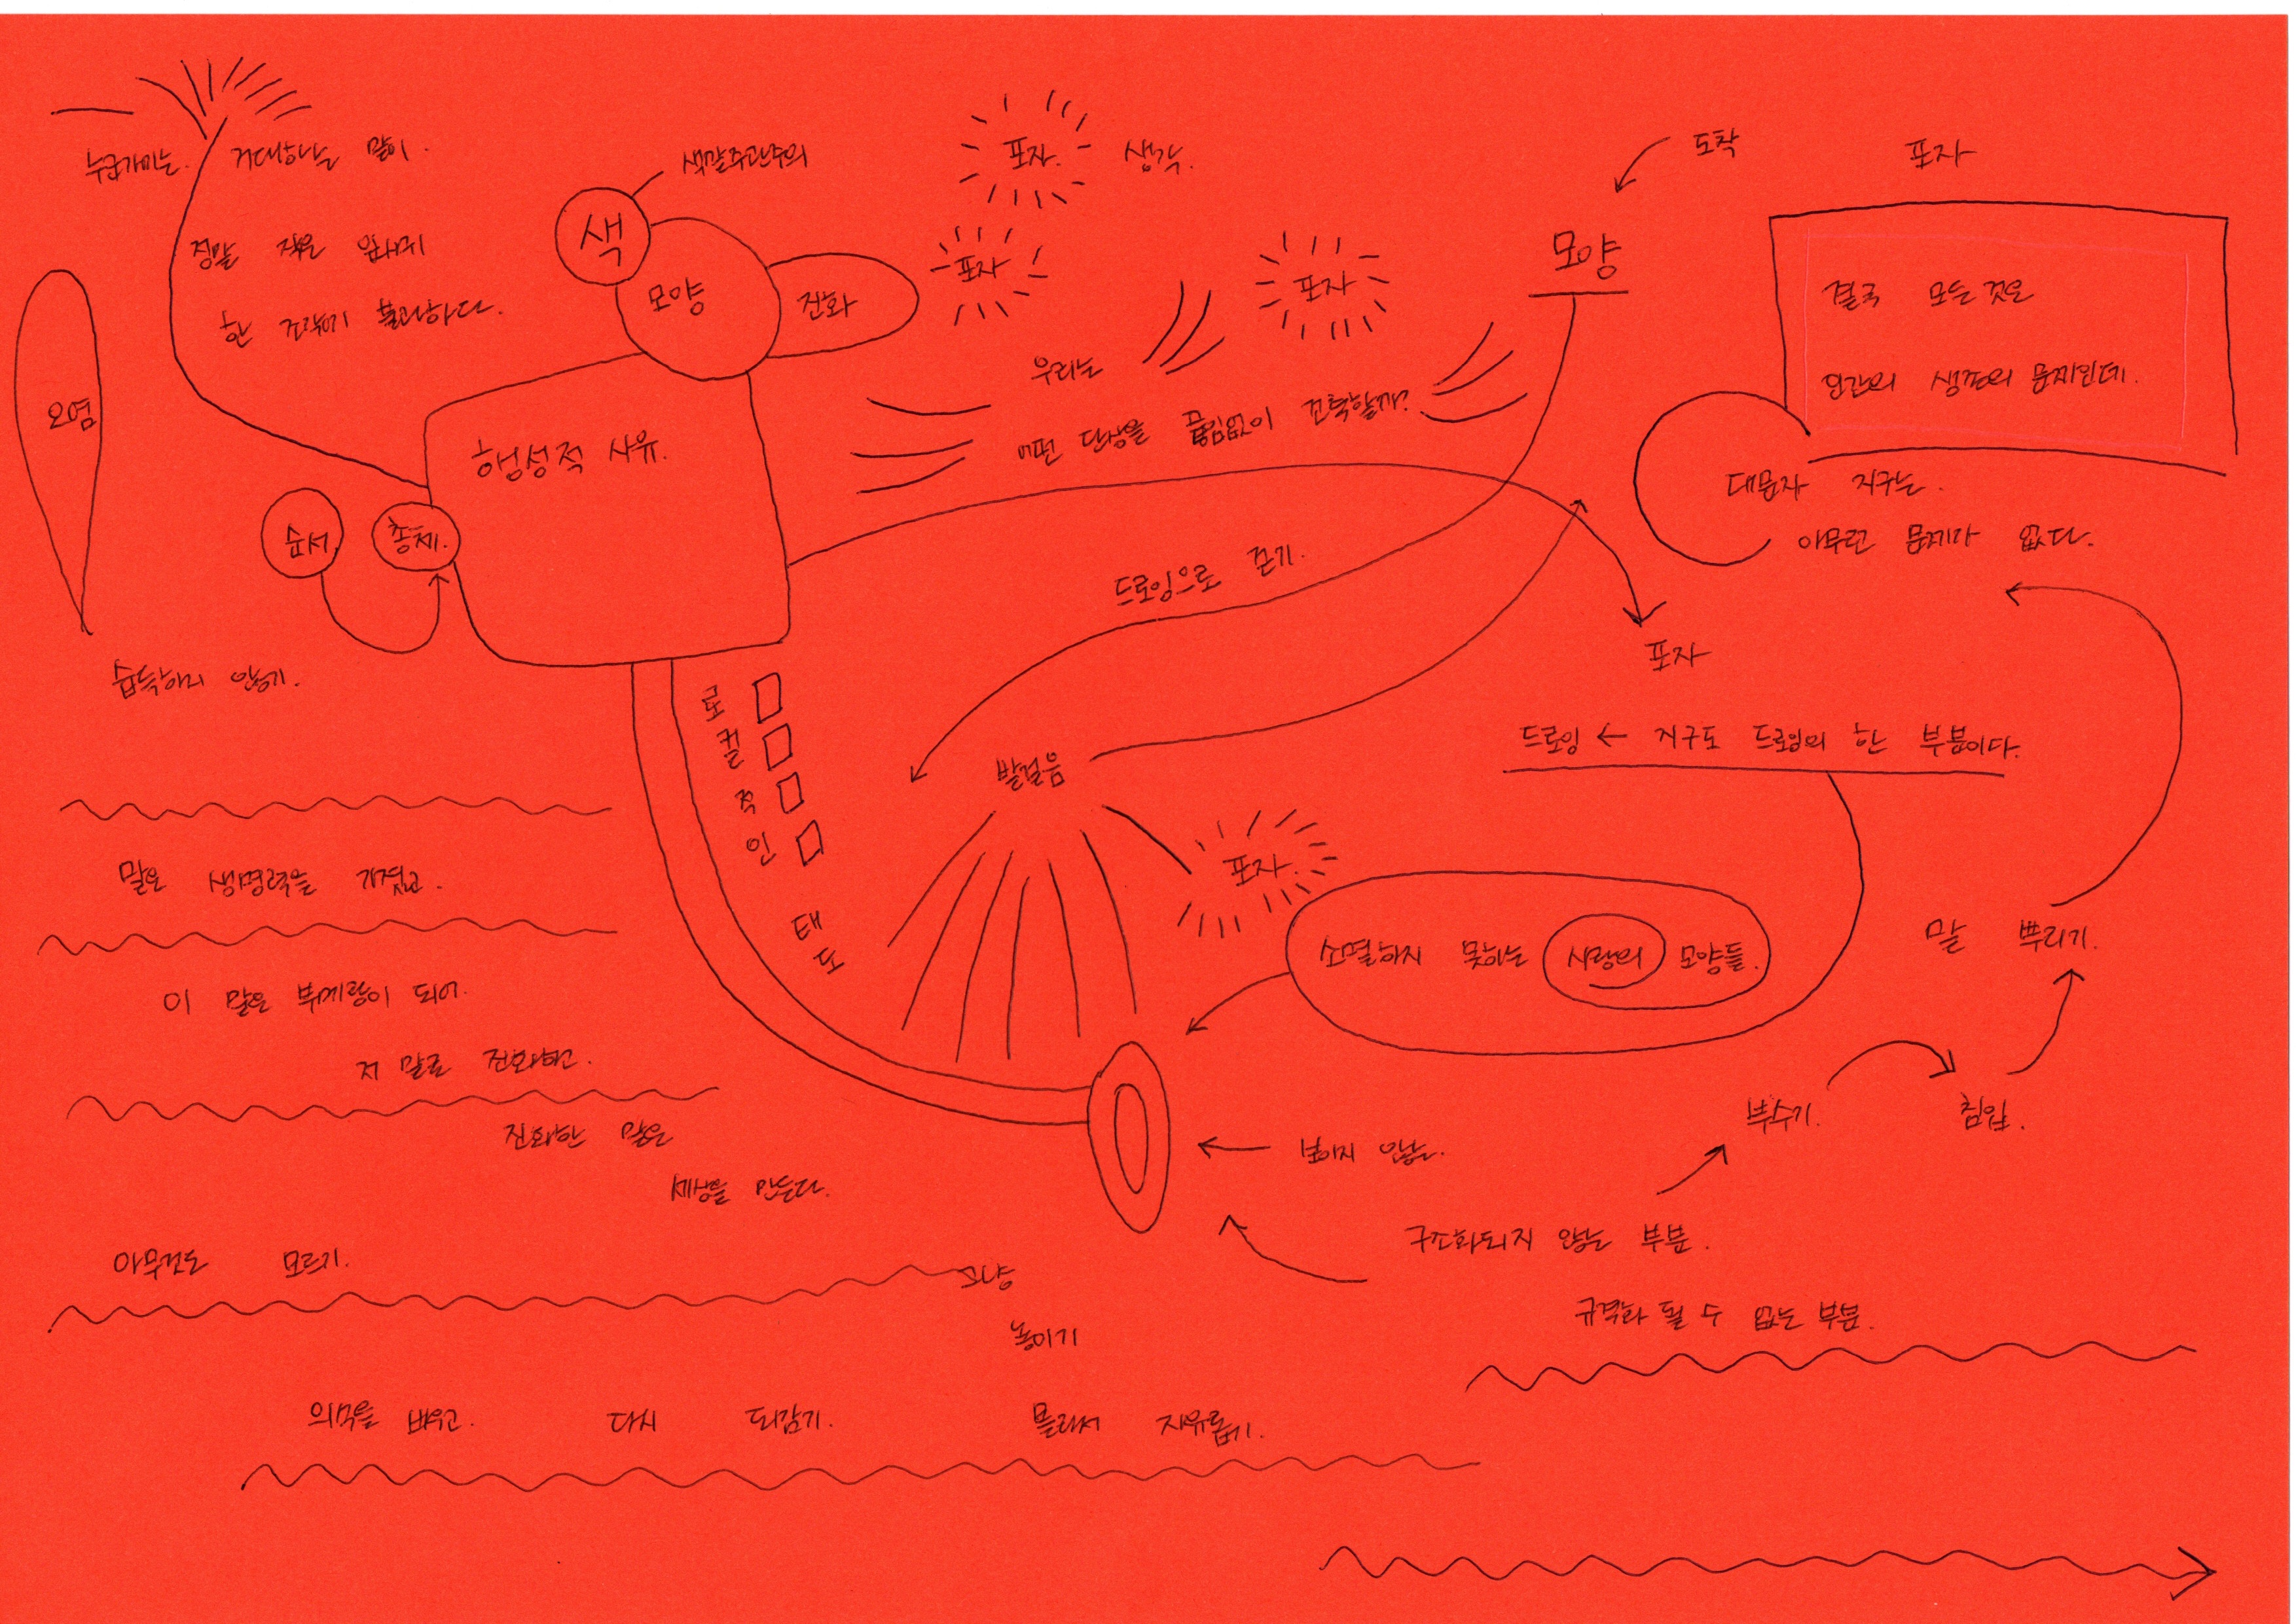 누군가에는 거대하다는 말이.
정말 작은 입새에
한 조각에 불과하다.
오염
순서
총체.
습득하지 않기.
색
색깔주관주의
모양
진화
행성적 사유.
포자. 생각.
포자
포자
우리는
어떤 단상을 끊임없이 건축할까?
도착
모양
포자
결국 모든 것은
인간의 생존의 문제인데.
대문자 지구는.
아무런 문제가 없다.
드로잉으로 걷기.
포자
드로잉 ← 지구도 드로잉의 한 부분이다.
로컬적인
태도
발걸음
포자.
소멸하지 못하는 사랑의 모양들.
말 뿌리기.
부수기.
침입.
보이지 않는.
구조화되지 않는 부분.
규격화 될 수 없는 부분.
말은 생명력을 가졌고.
이 말은 부메랑이 되어.
저 말로 진화하고.
진화한 말은
세상을 만든다.
아무것도 모르기.
그냥
놓이기
의미를 배우고. 다시 되감기. 몰라서 자유롭기.